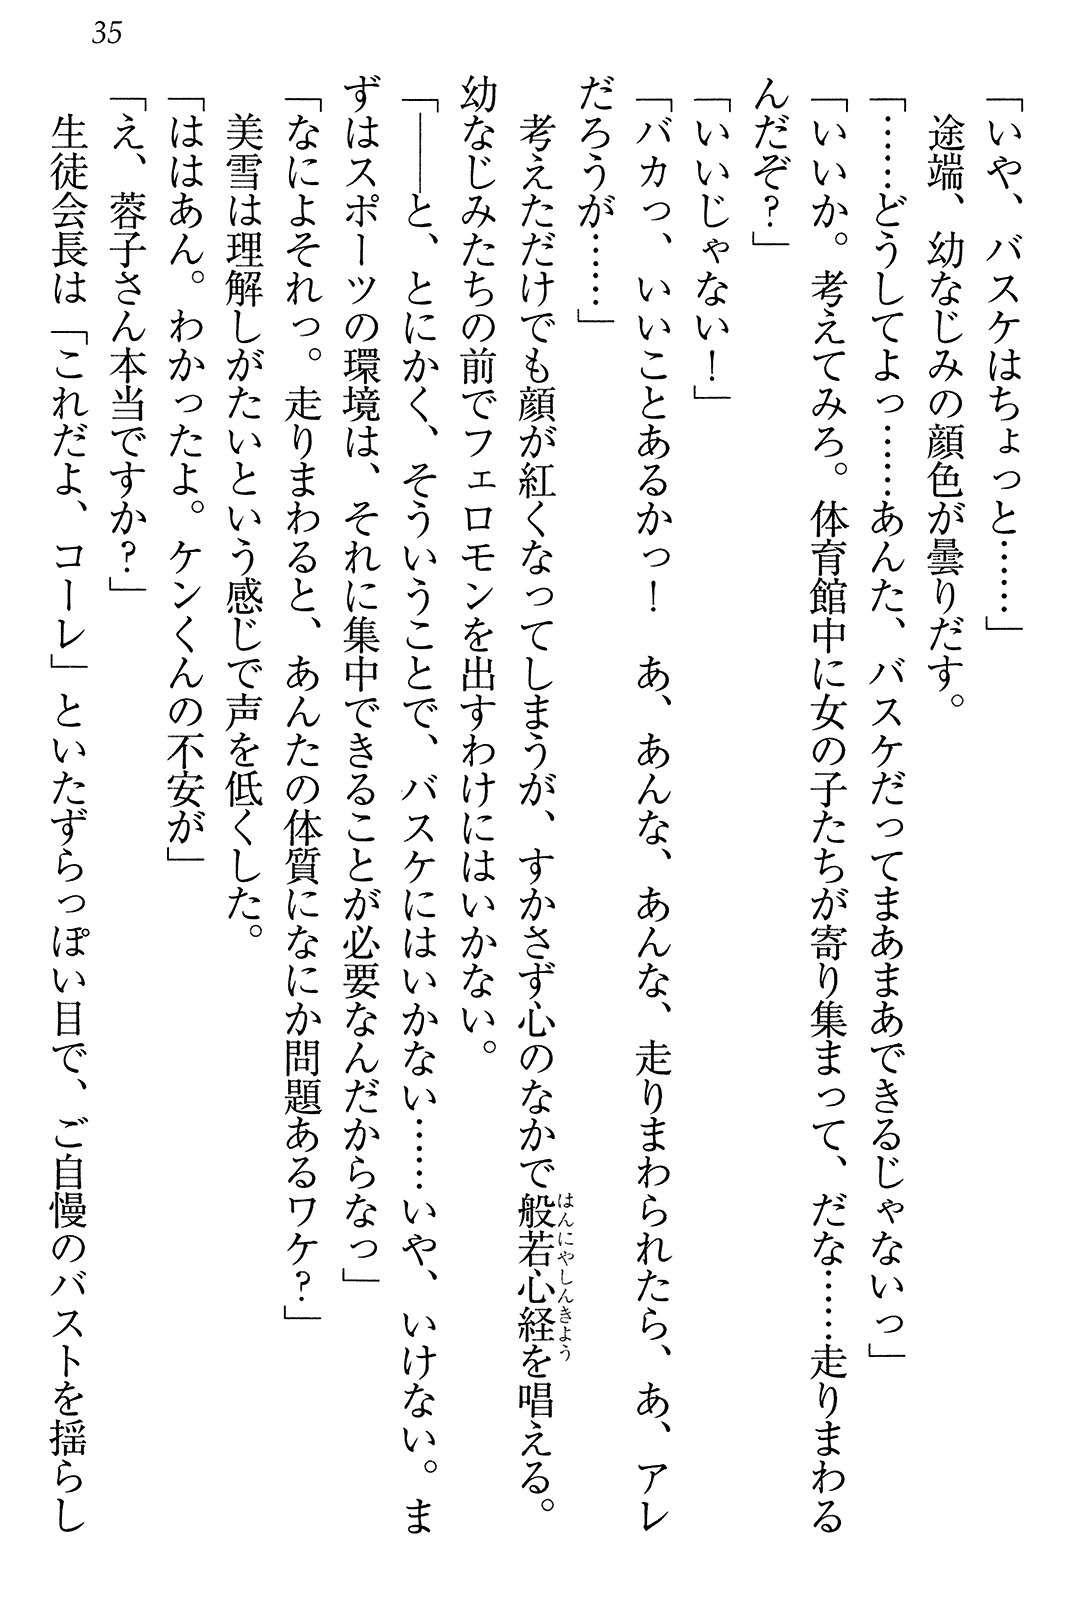 35
「いや、バスケはちょっと……」
途端、幼なじみの顔色が曇りだす。
「……どうしてよっ……あんた、バスケだってまあまあできるじゃないっ」
「いいか。考えてみろ。体育館中に女の子たちが寄り集まって、だな……走りまわる
んだぞ?」
「いいじゃない!」
「バカっ、いいことあるかっ! あ、あんな、あんな、走りまわられたら、あ、アレ
だろうが……」
考えただけでも顔が紅くなってしまうが、すかさず心のなかで般若心経を唱える。
はんにやしんきよう
幼なじみたちの前でフェロモンを出すわけにはいかない。
「――と、とにかく、そういうことで、バスケにはいかない……いや、いけない。ま
ずはスポーツの環境は、それに集中できることが必要なんだからなっ」
「なによそれっ。走りまわると、あんたの体質になにか問題あるワケ?」
美雪は理解しがたいという感じで声を低くした。
「ははあん。わかったよ。ケンくんの不安が」
「え、蓉子さん本当ですか?」
生徒会長は「これだよ、コーレ」といたずらっぽい目で、ご自慢のバストを揺らし